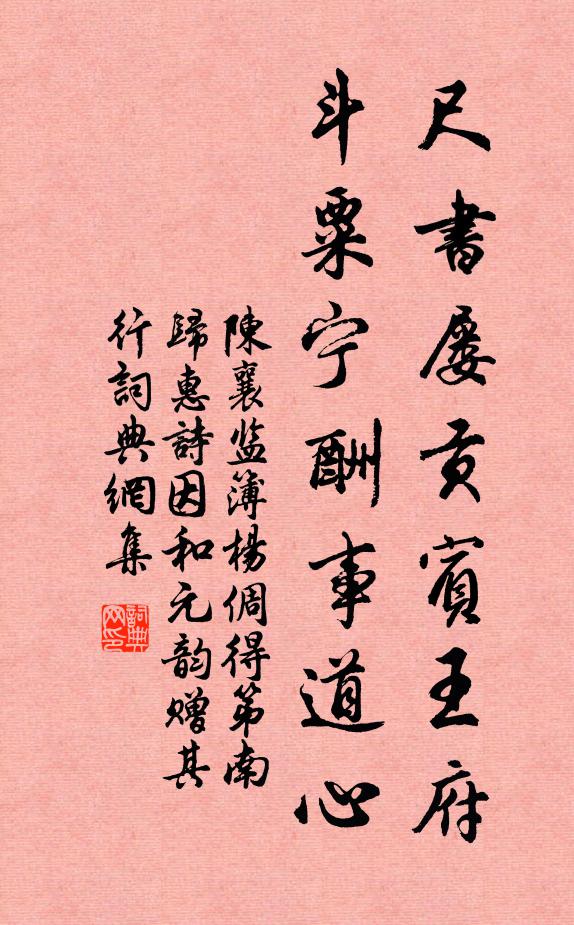 尺書屡贡賓王府
斗粟宁酬事道心
陳襄监簿楊倜得第南
歸惠詩因和元韵赠其
行詞典網集
詞典
网印